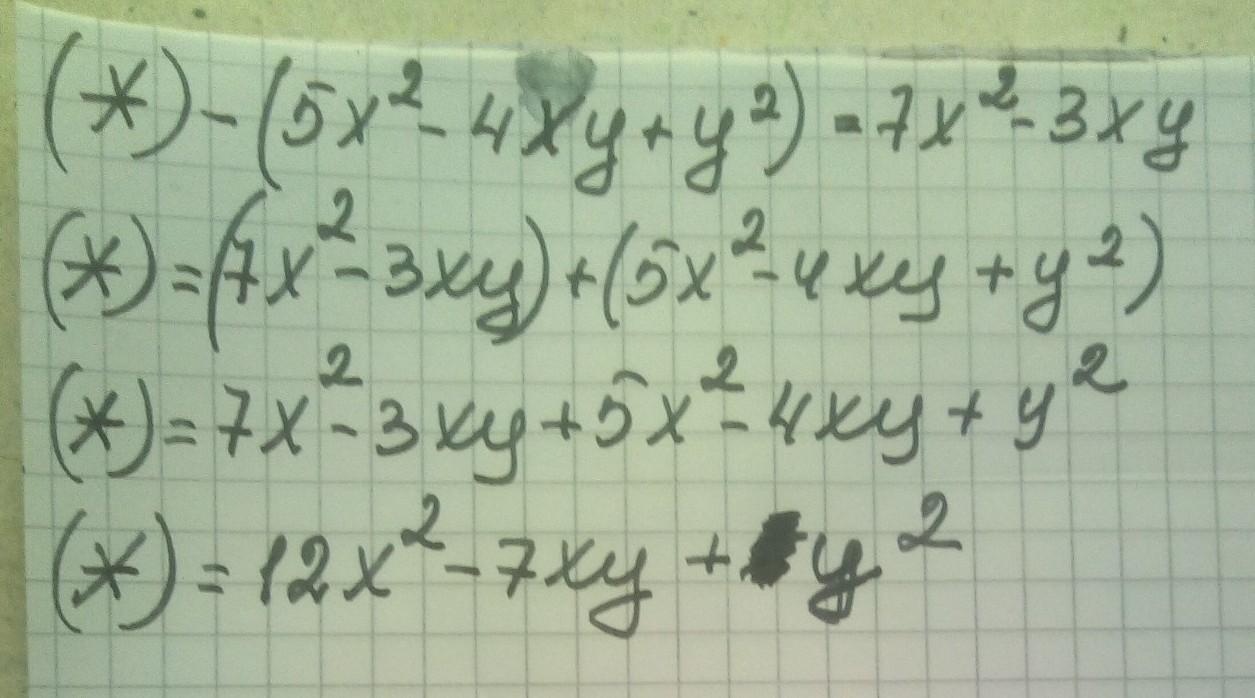 (*) - (5x² - 4xy + y²) = 7x² - 3xy
(*) = (7x² - 3xy) + (5x² - 4xy + y²)
(*) = 7x² - 3xy + 5x² - 4xy + y²
(*) = 12x² - 7xy + y²